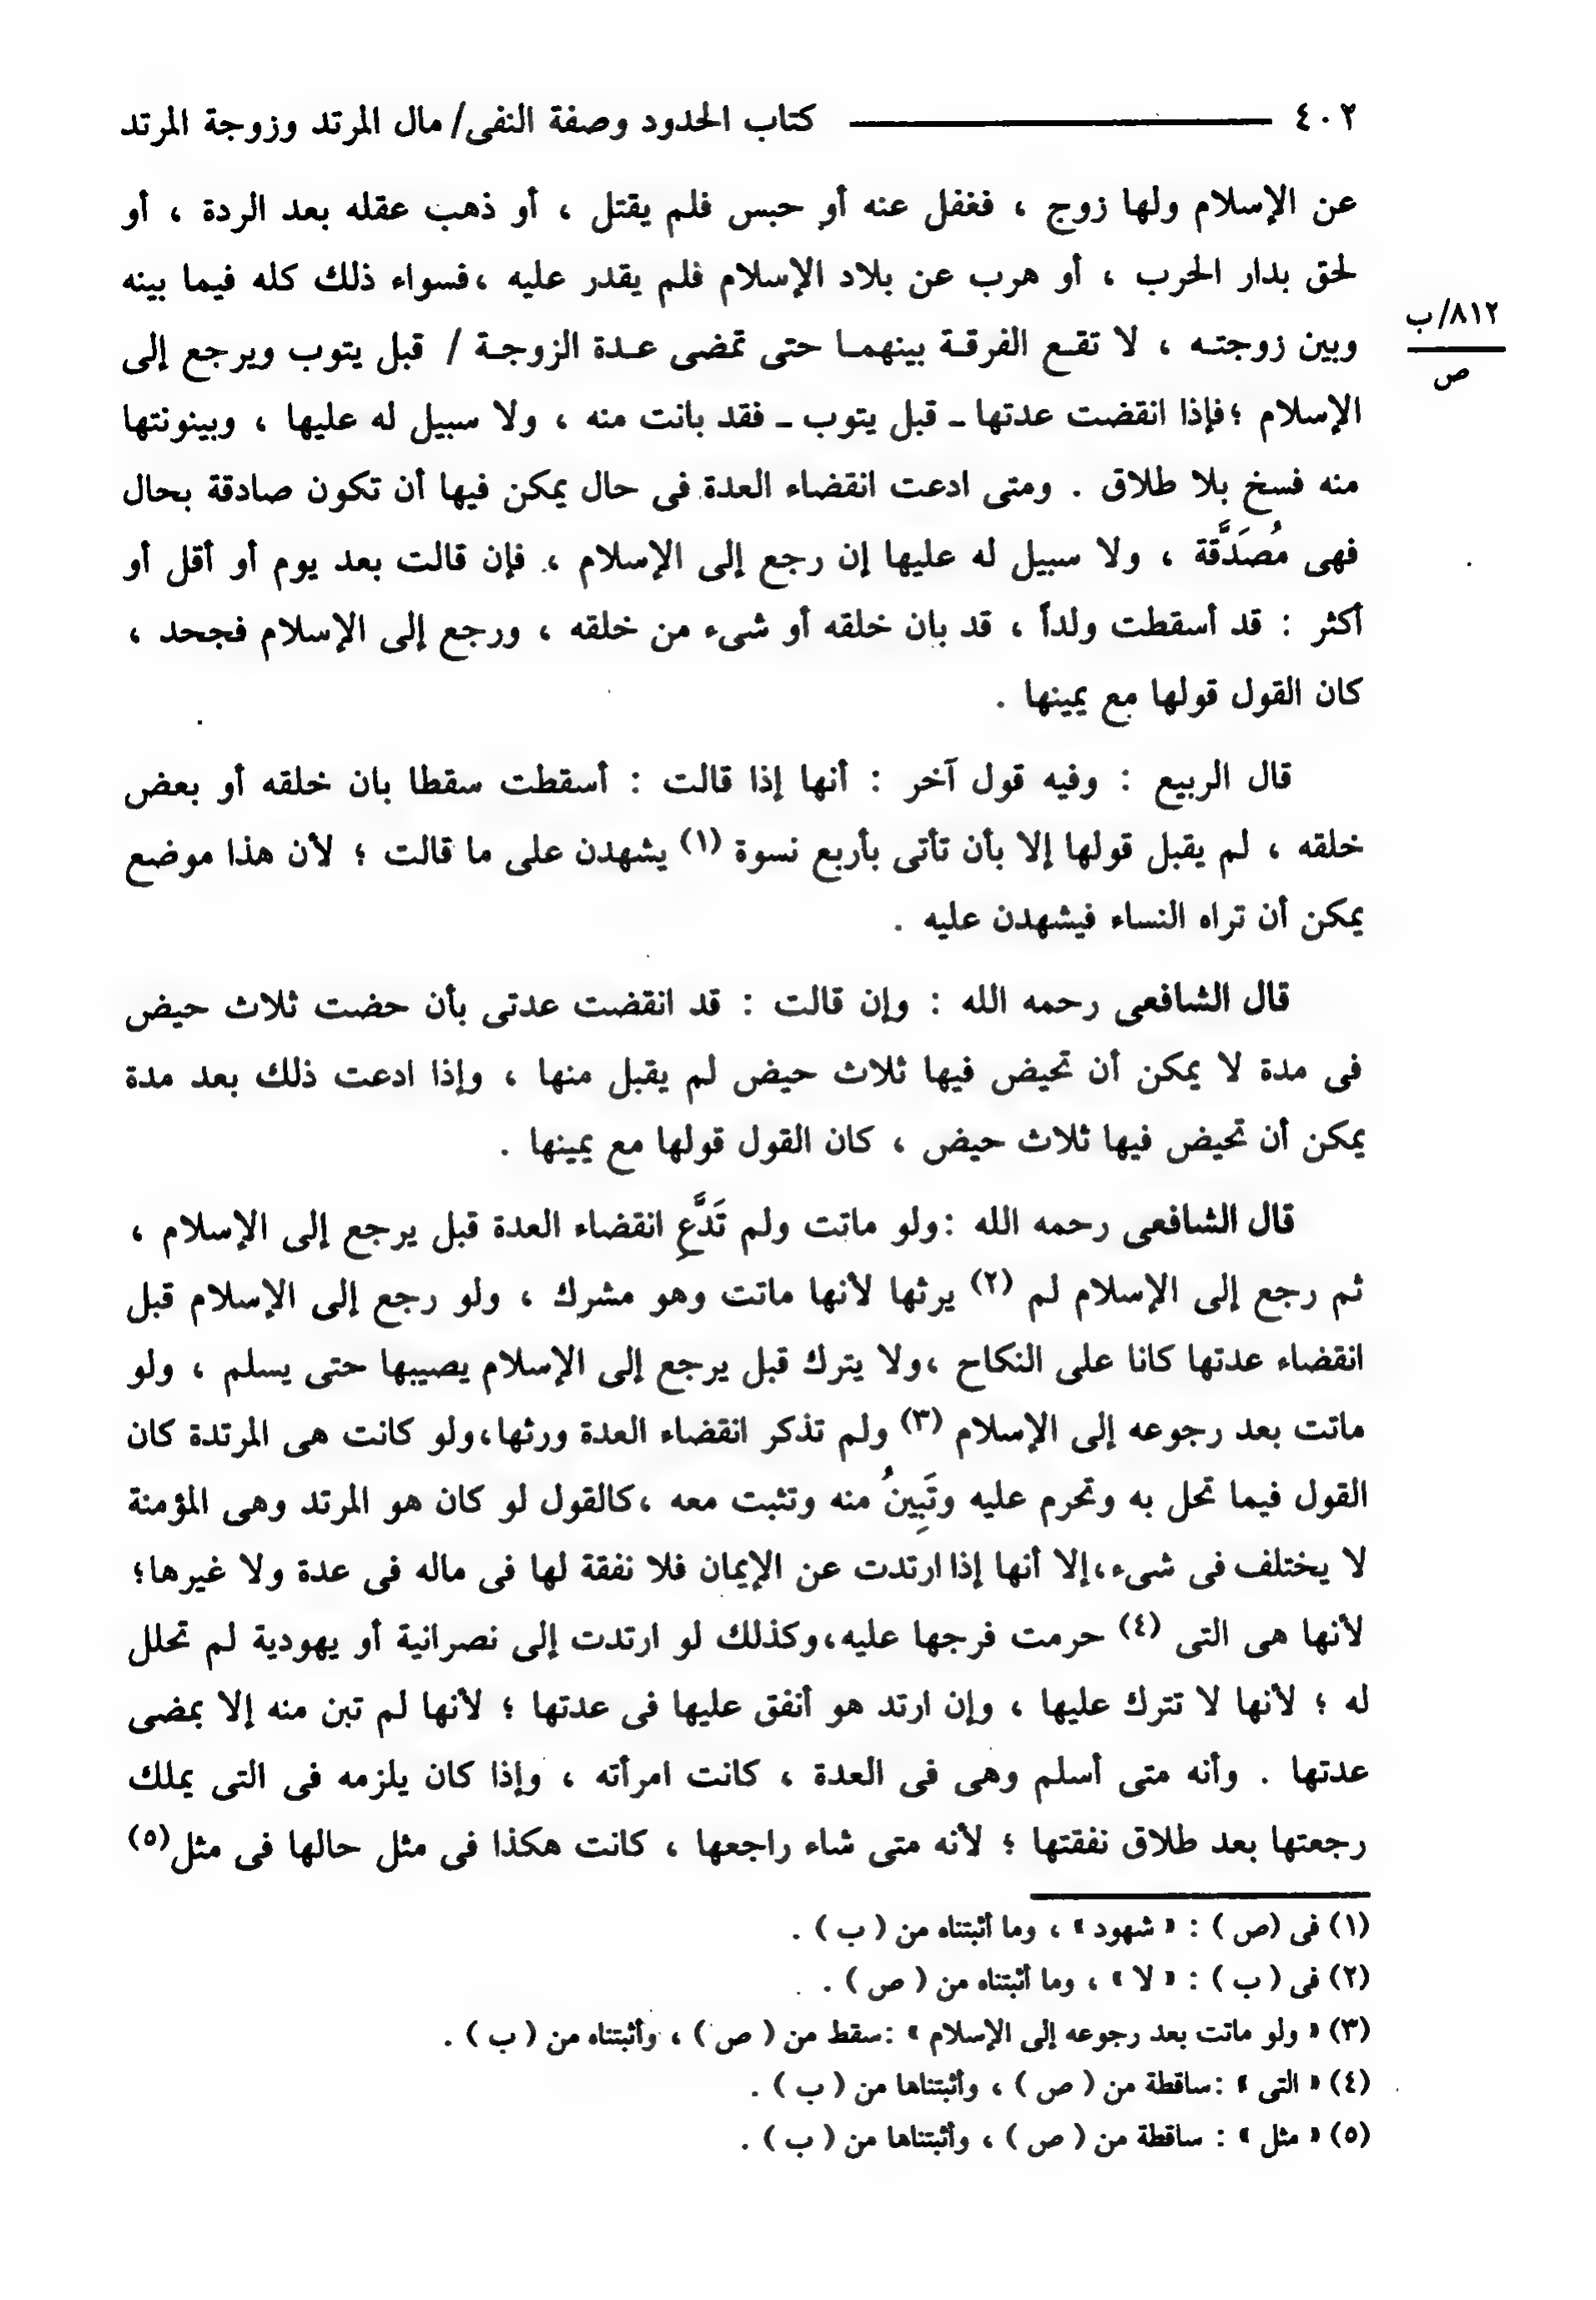 ٤٠٢ ــــــــــ كتاب الحدود وصفة النفى/ مال المرتد وزوجة المرتد
عن الإسلام ولها زوج ، فغفل عنه أو حبس فلم يقتل ، أو ذهب عقله بعد الردة ، أو
لحق بدار الحرب ، أو هرب عن بلاد الإسلام فلم يقدر عليه ،فسواء ذلك كله فيما بينه
وبين زوجته ، لا تقع الفرقة بينهما حتى تمضى عدة الزوجة / قبل يتوب ويرجع إلى
٨١٢/ب
ص
الإسلام ؛فإذا انقضت عدتها ـ قبل يتوب ـ فقد بانت منه ، ولا سبيل له عليها ، وبينونتها
منه فسخ بلا طلاق . ومتى ادعت انقضاء العدة فى حال يمكن فيها أن تكون صادقة بحال
فهى مُصَدَّقة ، ولا سبيل له عليها إن رجع إلى الإسلام ، فإن قالت بعد يوم أو أقل أو
أكثر : قد أسقطت ولداً ، قد بان خلقه أو شىء من خلقه ، ورجع إلى الإسلام فجحد ،
كان القول قولها مع يمينها .
قال الربيع : وفيه قول آخر : أنها إذا قالت : أسقطت سقطا بان خلقه أو بعض
خلقه ، لم يقبل قولها إلا بأن تأتى بأربع نسوة (١) يشهدن على ما قالت ؛ لأن هذا موضع
يمكن أن تراه النساء فيشهدن عليه .
قال الشافعى رحمه الله : وإن قالت : قد انقضت عدتى بأن حضت ثلاث حيض
فى مدة لا يمكن أن تحيض فيها ثلاث حيض لم يقبل منها ، وإذا ادعت ذلك بعد مدة
يمكن أن تحيض فيها ثلاث حيض ، كان القول قولها مع يمينها .
قال الشافعى رحمه الله :ولو ماتت ولم تَدَّعِ انقضاء العدة قبل يرجع إلى الإسلام ،
ثم رجع إلى الإسلام لم (٢) يرثها لأنها ماتت وهو مشرك ، ولو رجع إلى الإسلام قبل
انقضاء عدتها كانا على النكاح ،ولا يترك قبل يرجع إلى الإسلام يصيبها حتى يسلم ، ولو
ماتت بعد رجوعه إلى الإسلام (٣) ولم تذكر انقضاء العدة ورثها،ولو كانت هى المرتدة كان
القول فيما تحل به وتحرم عليه وتَبِينُ منه وتثبت معه ،كالقول لو كان هو المرتد وهى المؤمنة
لا يختلف فى شىء،إلا أنها إذا ارتدت عن الإيمان فلا نفقة لها فى ماله فى عدة ولا غيرها؛
لأنها هى التى (٤) حرمت فرجها عليه،وكذلك لو ارتدت إلى نصرانية أو يهودية لم تحلل
له ؛ لأنها لا تترك عليها ، وإن ارتد هو أنفق عليها فى عدتها ؛ لأنها لم تبن منه إلا بمضى
عدتها . وأنه متى أسلم وهى فى العدة ، كانت امرأته ، وإذا كان يلزمه فى التى يملك
رجعتها بعد طلاق نفقتها ؛ لأنه متى شاء راجعها ، كانت هكذا فى مثل حالها فى مثل(٥)
(١) فى (ص ) : « شهود » ، وما أثبتناه من ( ب ) .
(٢) فى ( ب ) : « لا » ، وما أثبتناه من ( ص ) .
(٣) « ولو ماتت بعد رجوعه إلى الإسلام » :سقط من ( ص ) ، وأثبتناه من ( ب ) .
(٤) « التى » :ساقطة من ( ص ) ، وأثبتناها من ( ب ) .
(٥) « مثل » : ساقطة من ( ص ) ، وأثبتناها من ( ب ) .